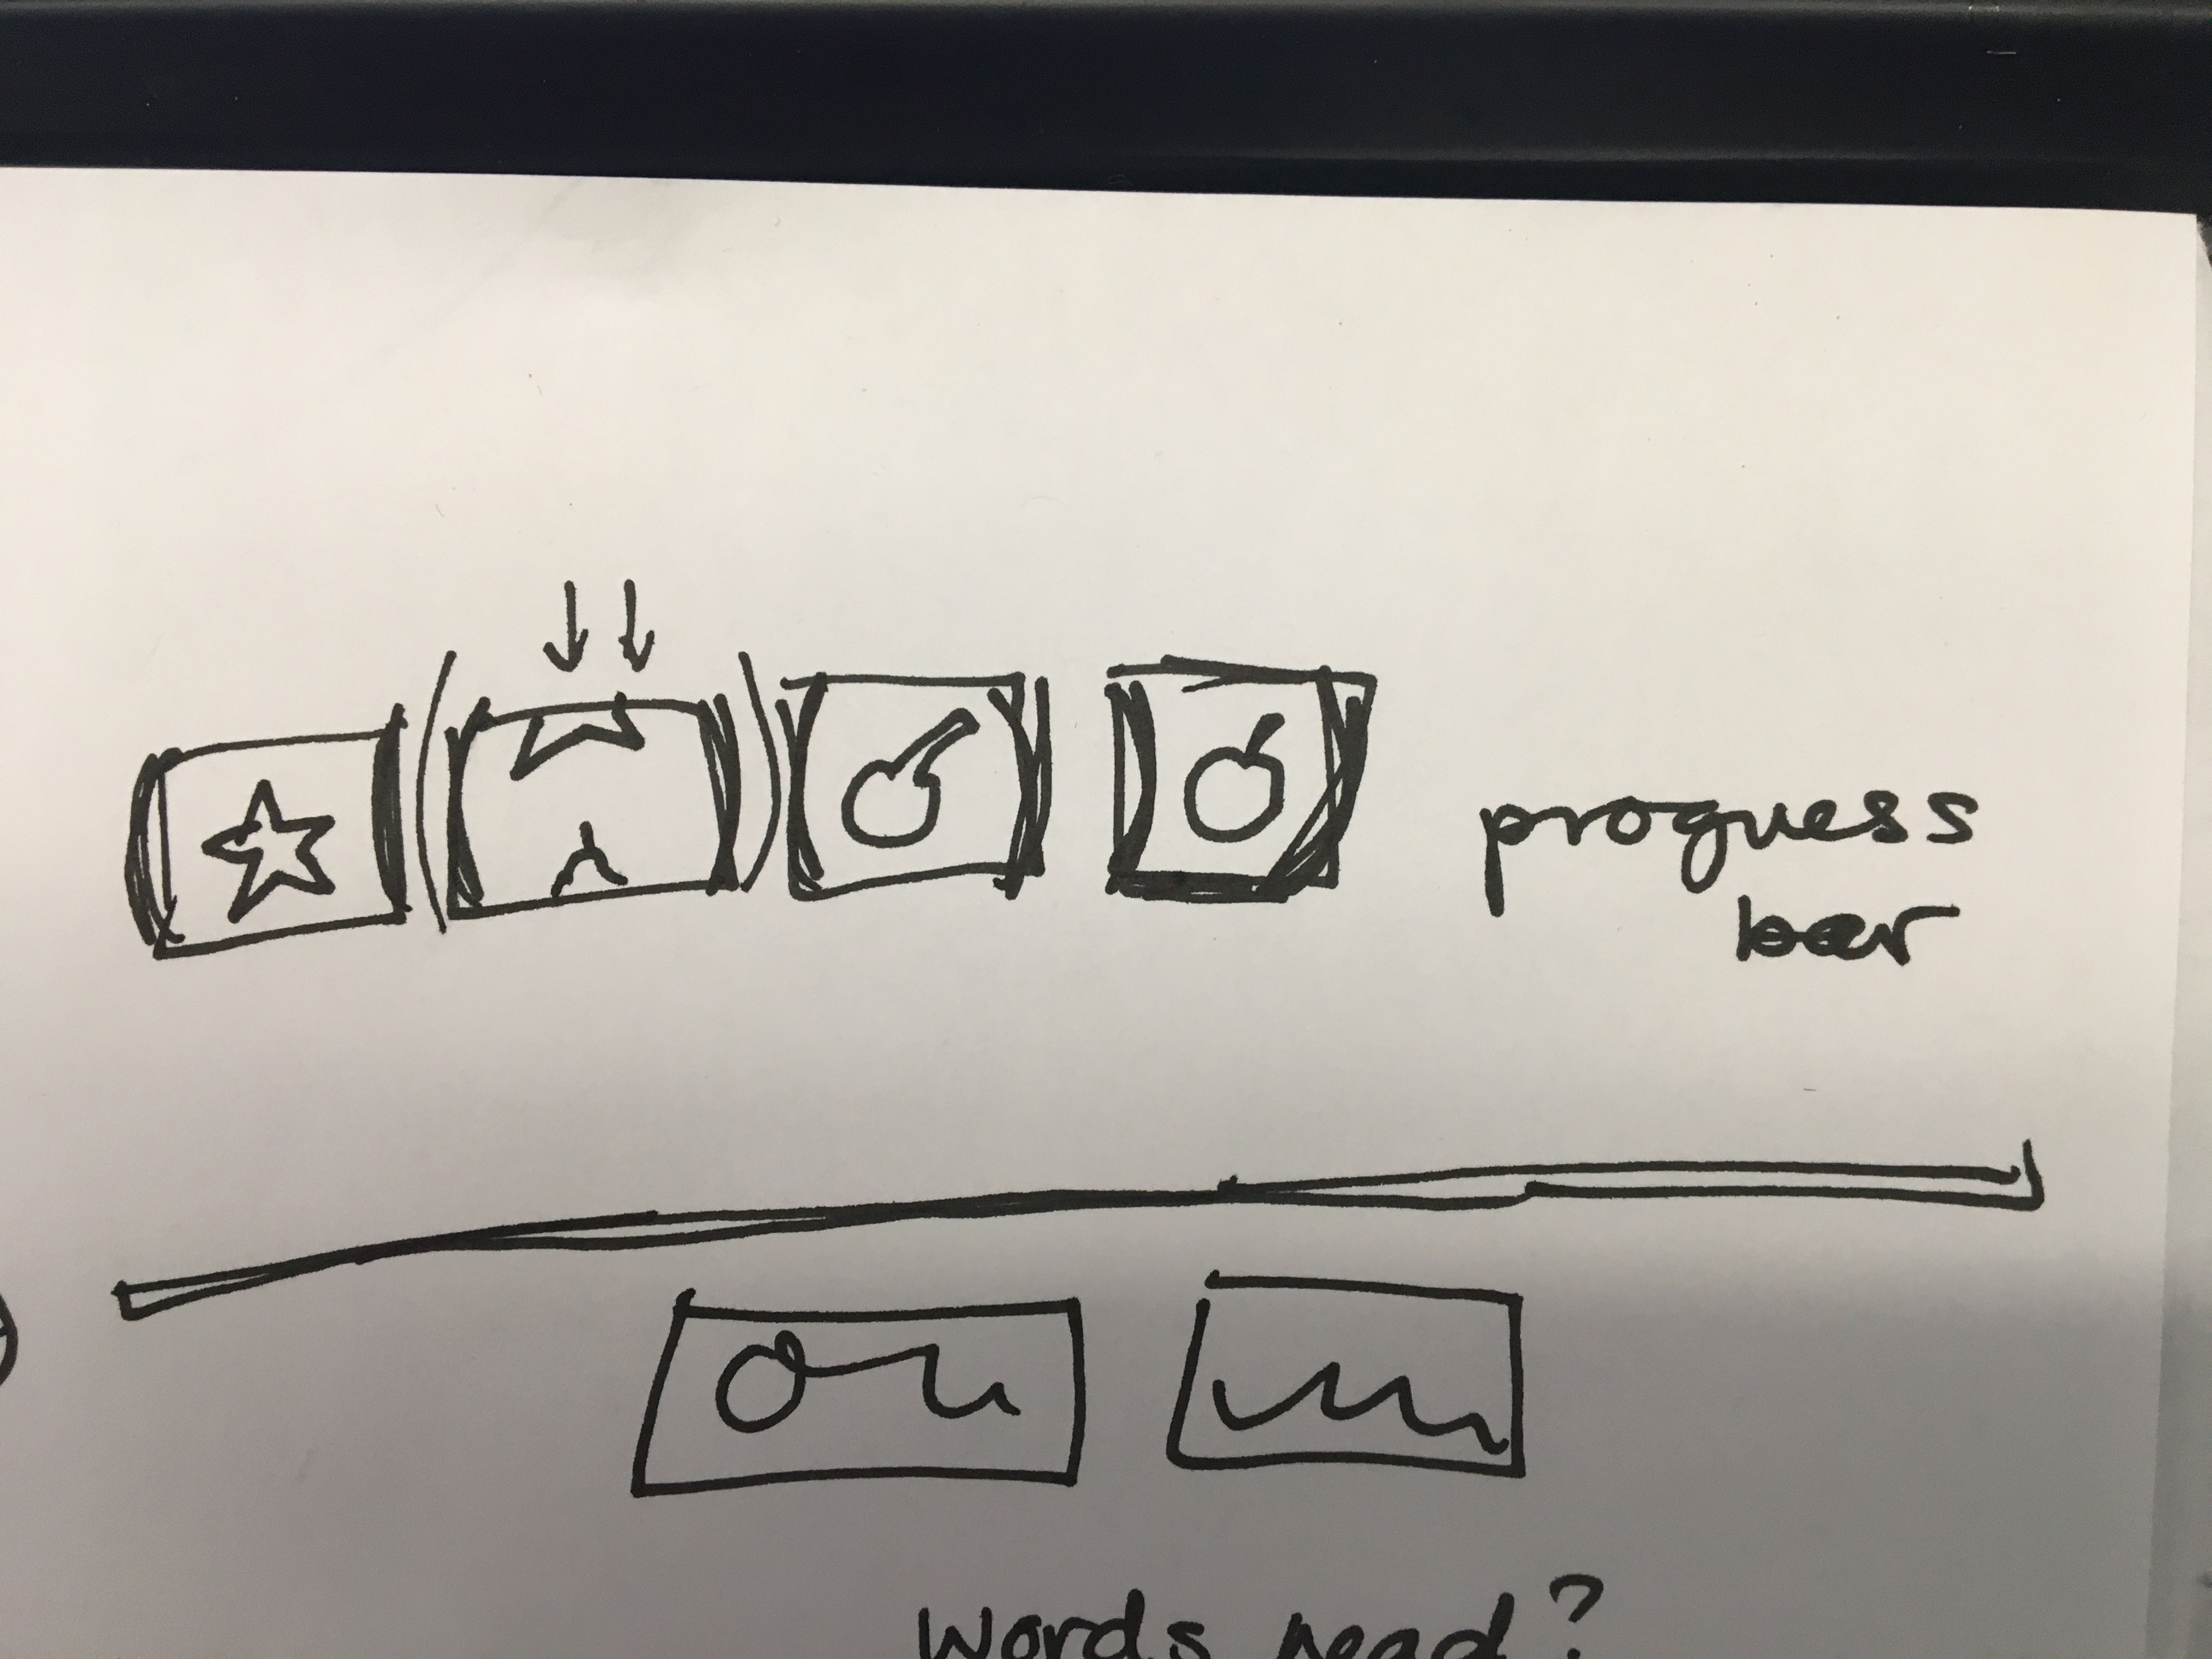 progress
bar
Words read?